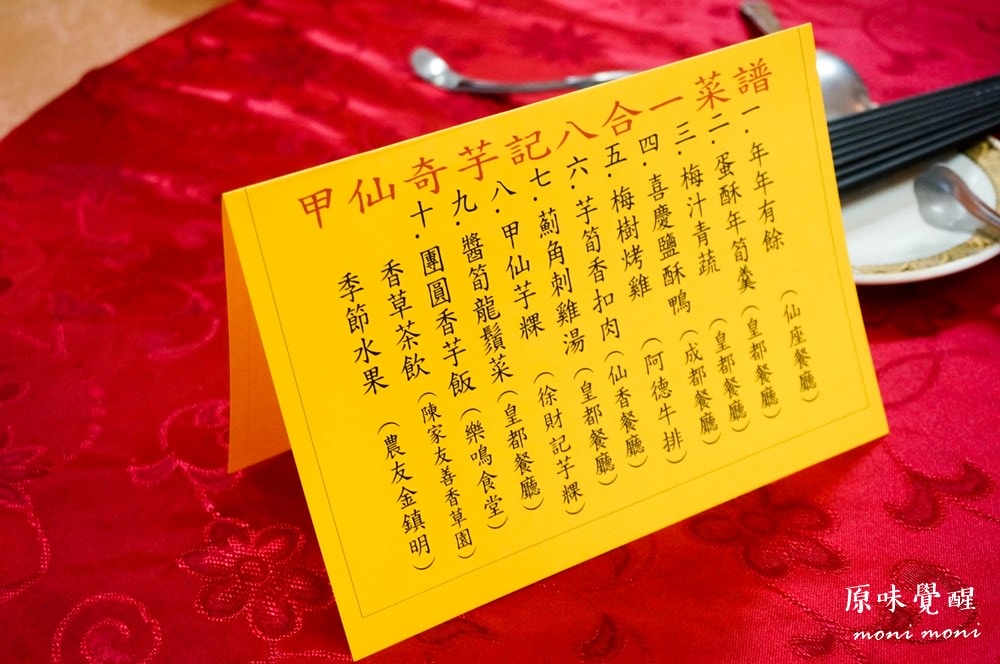 甲仙奇芋記八合一菜譜
一．年年有餘（仙座餐廳）
二．蛋酥年筍羹（皇都餐廳）
三．梅汁青蔬（皇都餐廳）
四．喜慶鹽酥鴨（成都餐廳）
五．梅樹烤雞（阿德牛排）
六．芋筍香扣肉（仙香餐廳）
七．薊角刺雞湯（皇都餐廳）
八．甲仙芋粿（徐財記芋粿）
九．醬筍龍鬚菜（皇都餐廳）
十．團圓香芋飯（樂鳴食堂）
香草茶飲（陳家友善香草園）
季節水果（農友金鎮明）
原味覺醒
moni moni